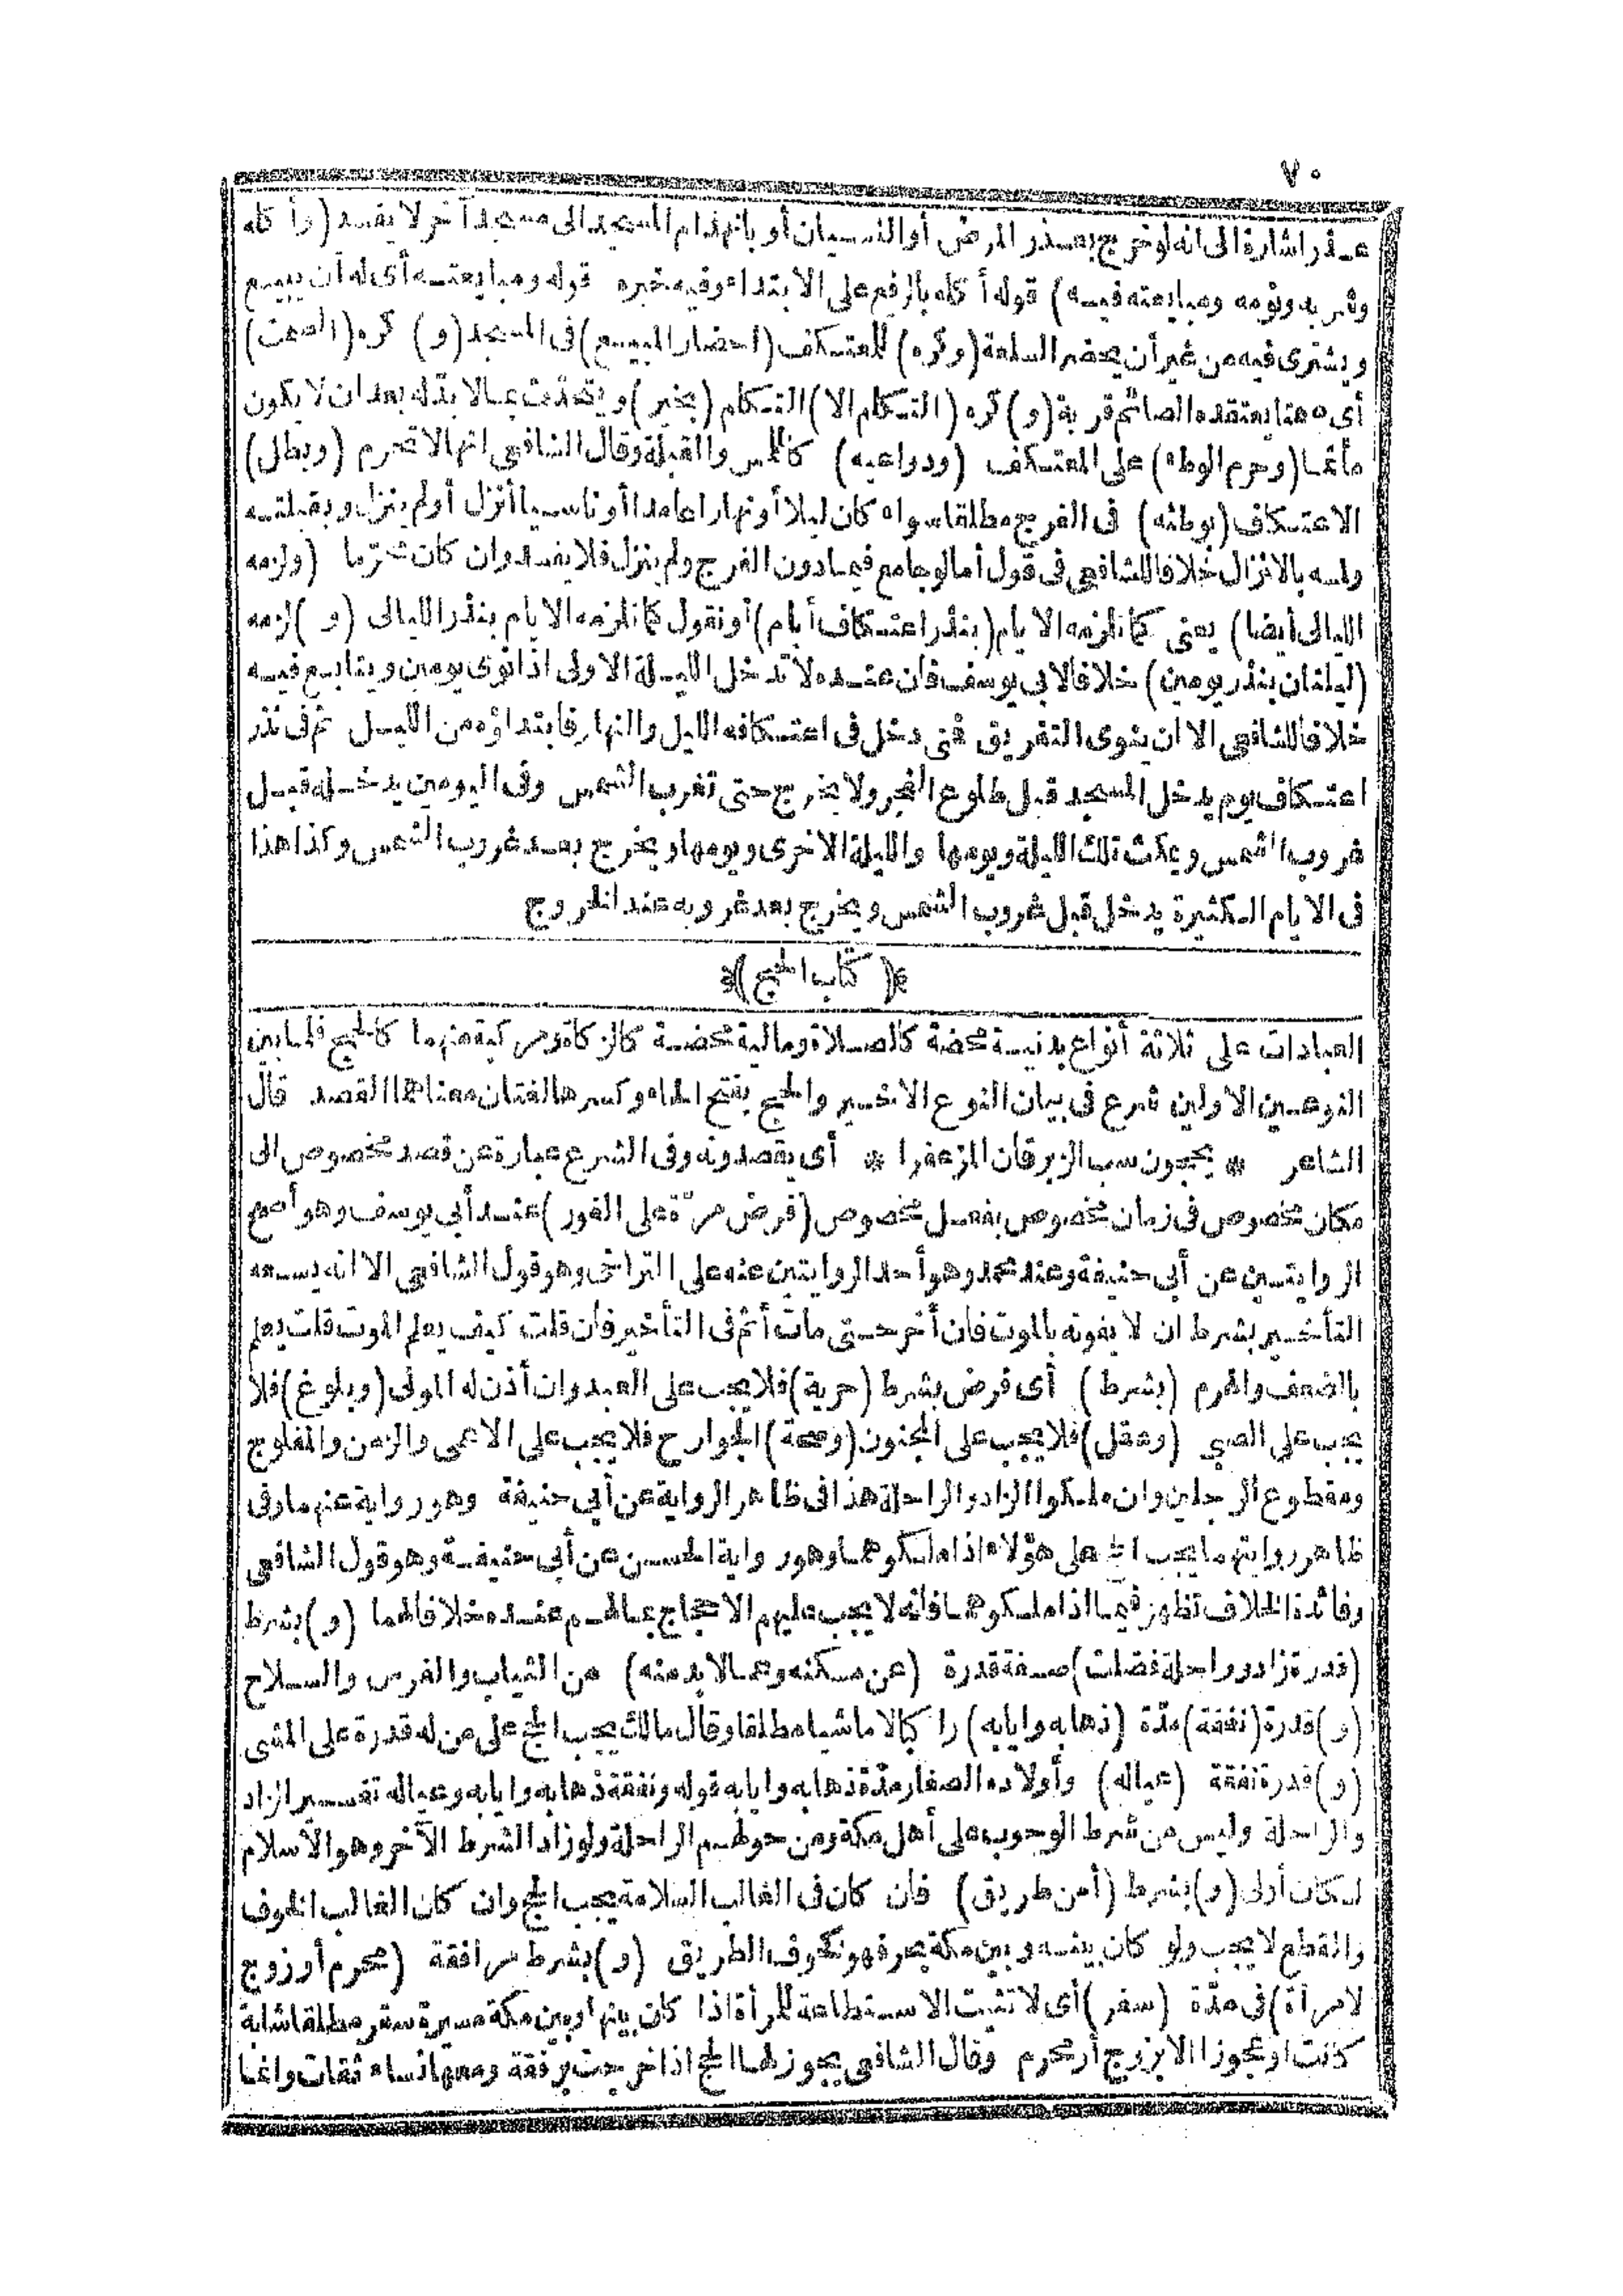 ٧٠
عذر اشارة الى انه لو خرج بعذر المرض أو النسيان أو بانهدام المسجد الى مسجد آخر لا يفسد (وأكله
وشربه ونومه ومبايعته فيه) قوله أكله بالرفع على الابتداء وفيه خبره قوله ومبايعته أى له أن يبيع
ويشترى فيه من غير أن يحضر السلعة (وكره) للمعتكف (احضار المبيع) فى المسجد (و) كره (الصمت)
أى صمتا يعتقده الصائم قربة (و) كره (التكلم الا) التكلم (بخير) و يتحدث بما لا بد له بعد ان لا يكون
مأثما (وحرم الوطء) على المعتكف (ودواعيه) كاللمس والقبلة وقال الشافعى انها لا تحرم (وبطل)
الاعتكاف (بوطئه) فى الفرج مطلقا سواء كان ليلا أو نهارا عامدا أو ناسيا أنزل أولم ينزل وبقبلته
ولمسه بالانزال خلافا للشافعى فى قول أما لو جامع فيما دون الفرج ولم ينزل فلا يفسد وان كان محرّما (ولزمه
الليالى أيضا) يعنى كما تلزمه الايام (بنذر اعتكاف أيام) أو نقول كما تلزمه الايام بنذر الليالى (و) لزمه
(ليلتان بنذر يومين) خلافا لابى يوسف فان عنده لا تدخل الليلة الاولى اذا نوى يومين ويتابع فيه
خلافا للشافعى الا ان ينوى التفريق فمتى دخل فى اعتكافه الليل والنهار فابتداؤه من الليل ثم فى نذر
اعتكاف يوم يدخل المسجد قبل طلوع الفجر ولا يخرج حتى تغرب الشمس وفى اليومين يدخله قبل
غروب الشمس ويمكث تلك الليلة ويومها والليلة الاخرى ويومها ويخرج بعد غروب الشمس وكذا هذا
فى الايام الكثيرة يدخل قبل غروب الشمس ويخرج بعد غروبه عند الخروج
﴿كتاب الحج﴾
العبادات على ثلاثة أنواع بدنية محضة كالصلاة ومالية محضة كالزكاة ومركبة منهما كالحج فلما بين
النوعين الاولين شرع فى بيان النوع الاخير والحج بفتح الحاء وكسرها لغتان معناهما القصد قال
الشاعر * يحجون سب الزبرقان المزعفرا * أى يقصدونه وفى الشرع عبارة عن قصد مخصوص الى
مكان مخصوص فى زمان مخصوص بفعل مخصوص (فرض مرّة على الفور) عند أبى يوسف وهو أصح
الروايتين عن أبى حنيفة وعند محمد وهو أحد الروايتين عنه على التراخى وهو قول الشافعى الا انه يسعه
التأخير بشرط ان لا يفوته بالموت فان أخر حتى مات أثم فى التأخير فان قلت كيف يعلم الموت قلت يعلم
بالضعف والهرم (بشرط) أى فرض بشرط (حرية) فلا يجب على العبد وان أذن له المولى (وبلوغ) فلا
يجب على الصبى (وعقل) فلا يجب على المجنون (وصحة) الجوارح فلا يجب على الاعمى والزمن والمفلوج
ومقطوع الرجلين وان ملكوا الزاد والراحلة هذا فى ظاهر الرواية عن أبى حنيفة وهو رواية عنهما وفى
ظاهر روايتهما يجب الحج على هؤلاء اذا ملكوهما وهو رواية الحسن عن أبى حنيفة وهو قول الشافعى
وفائدة الخلاف تظهر فيما اذا ملكوهما فانه لا يجب عليهم الاحجاج بمالهم عنده خلافا لهما (و) بشرط
(قدرة زاد وراحلة فضلت) صفة قدرة (عن مسكنه وعما لا بد منه) من الثياب والفرس والسلاح
(و) قدرة (نفقة) مدّة (ذهابه وايابه) راكبا لا ماشيا مطلقا وقال مالك يجب الحج على من له قدرة على المشى
(و) قدرة نفقة (عياله) وأولاده الصغار مدّة ذهابه وايابه قوله ونفقة ذهابه وايابه وعياله تفسير الزاد
والراحلة وليس من شرط الوجوب على أهل مكة ومن حولهم الراحلة ولو زاد الشرط الآخر وهو الاسلام
لكان أولى (و) بشرط (أمن طريق) فان كان فى الغالب السلامة يجب الحج وان كان الغالب الخوف
والقطع لا يجب ولو كان بينه وبين مكة بحر فهو كخوف الطريق (و) بشرط مرافقة (محرم أو زوج
لامرأة) فى مدّة (سفر) أى لا تثبت الاستطاعة للمرأة اذا كان بينها وبين مكة مسيرة سفر مطلقا شابة
كانت او عجوزا الا بزوج أو محرم وقال الشافعى يجوز لها الحج اذا خرجت برفقة ومعها نساء ثقات وانما